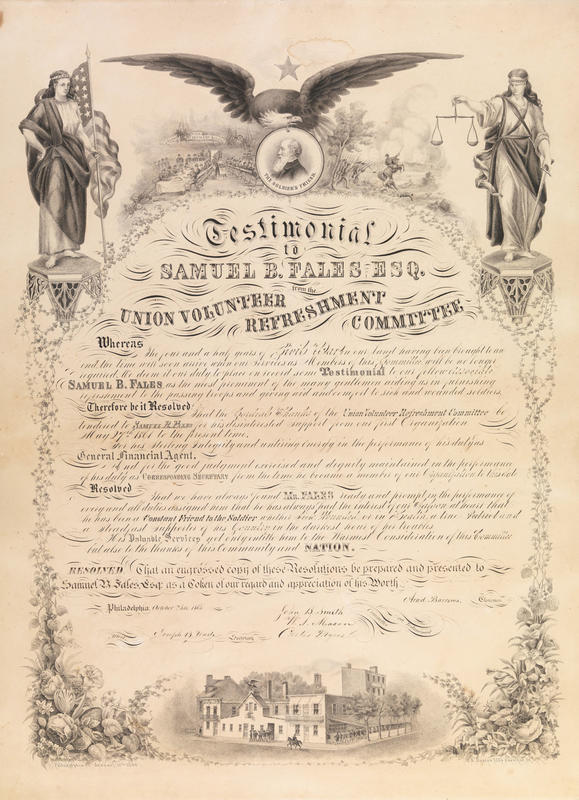 THE SOLDIER'S FRIEND
Testimonial
to
SAMUEL B. FALES ESQ.
from the
UNION VOLUNTEER
REFRESHMENT
COMMITTEE
Whereas
The four and a half years of Civil War in our land having been brought to an
end, the time will soon arrive when our services as Members of this Committee will be no longer
required, We deem it our duty to record some Testimonial to our fellow associate
SAMUEL B. FALES, as the most prominent of the many gentlemen aiding us in furnishing
refreshment to the passing troops and giving aid and comfort to sick and wounded soldiers,
Therefore be it Resolved That the Thanks of the Union Volunteer Refreshment Committee be
tendered to SAMUEL B. FALES for his disinterested support from our first Organization
May 27th 1861 to the present time,
For his Sterling Integrity and untiring energy in the performance of his duty as
General Financial Agent.
And for the good judgment exercised and dignity maintained in the performance
of his duty as CORRESPONDING SECRETARY from the time he became a member of our Organization to
Resolved
That we have always found MR. FALES ready and prompt in the performance of
every and all duties assigned him that he has always had the interest of our at heart that
he has been a Constant Friend to the Soldier whether Sick, Wounded, or in a true Patriot and
a steadfast supporter of his Country in the darkest hour of her troubles
His Valuable Services not only entitle him to the Warmest Consideration of this Committee
but also to the thanks of this Community and NATION.
RESOLVED That an engrossed copy of these Resolutions be prepared and presented to
Samuel B. Fales, Esq. as a Token of our regard and appreciation of his Worth
Arad Barrows, Chairman
Philadelphia, October
John B. Smith
Joseph B. Wade Secretary